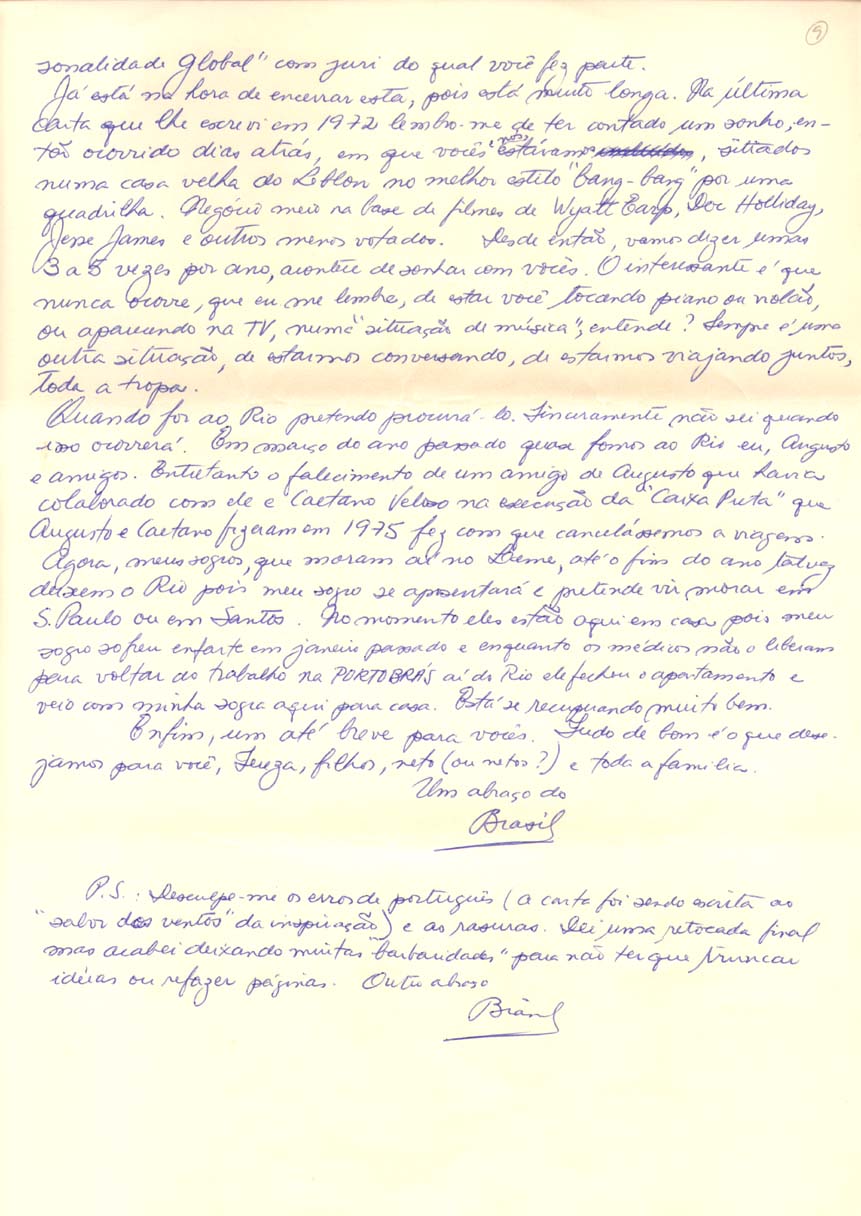 9
sonalidade Global" com juri do qual você fez parte.
Já está na hora de encerrar esta, pois está muito longa. Na última
carta que lhe escrevi em 1972 lembro-me de ter contado um sonho, en-
tão ocorrido dias atrás, em que vocês e nós estávamos, sitiados
numa casa velha do Leblon no melhor estilo "bang-bang" por uma
quadrilha. Negócio meio na base de filmes de Wyatt Earp, Doc Holliday,
Jesse James e outros menos votados. Desde então, vamos dizer umas
3 a 5 vezes por ano, acontece de sonhar com vocês. O interessante é que
nunca ocorre, que eu me lembre, de estar você tocando piano ou violão,
ou aparecendo na TV, numa "situação de música", entende? Sempre é uma
outra situação, de estarmos conversando, de estarmos viajando juntos,
toda a tropa.
Quando for ao Rio pretendo procurá-lo. Sinceramente não sei quando
isso ocorrerá. Em março do ano passado quase fomos ao Rio eu, Augusto
e amigos. Entretanto o falecimento de um amigo de Augusto que havia
colaborado com ele e Caetano Veloso na execução da "Caixa Preta" que
Augusto e Caetano fizeram em 1975 fez com que cancelássemos a viagem.
Agora, meus sogros, que moram aí no Leme, até o fim do ano talvez
deixem o Rio pois meu sogro se aposentará e pretende vir morar em
S. Paulo ou em Santos. No momento eles estão aqui em casa pois meu
sogro sofreu enfarte em janeiro passado e enquanto os médicos não o liberam
para voltar ao trabalho na PORTOBRÁS aí do Rio ele fechou o apartamento e
veio com minha sogra aqui para casa. Está se recuperando muito bem.
Enfim, um até breve para vocês. Tudo de bom é o que dese-
jamos para você, Tereza, filhos, neto (ou netos?) e toda a família.
Um abraço do
Brasil
P.S.: Desculpe-me os erros de português (a carta foi sendo escrita ao
"sabor dos ventos" da inspiração) e as rasuras. Dei uma retocada final
mas acabei deixando muitas "barbaridades" para não ter que truncar
idéias ou refazer páginas. Outro abraço
Brasil